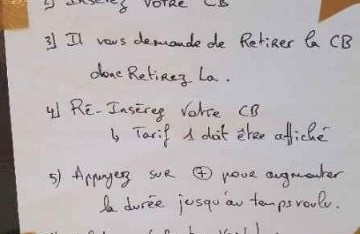 2) Insérez votre CB
3) Il vous demande de Retirer la CB
donc Retirez La.
4) Ré-Insérez votre CB
↳ Tarif 1 doit être affiché
5) Appuyez sur ⊕ pour augmenter
la durée jusqu'au temps voulu.